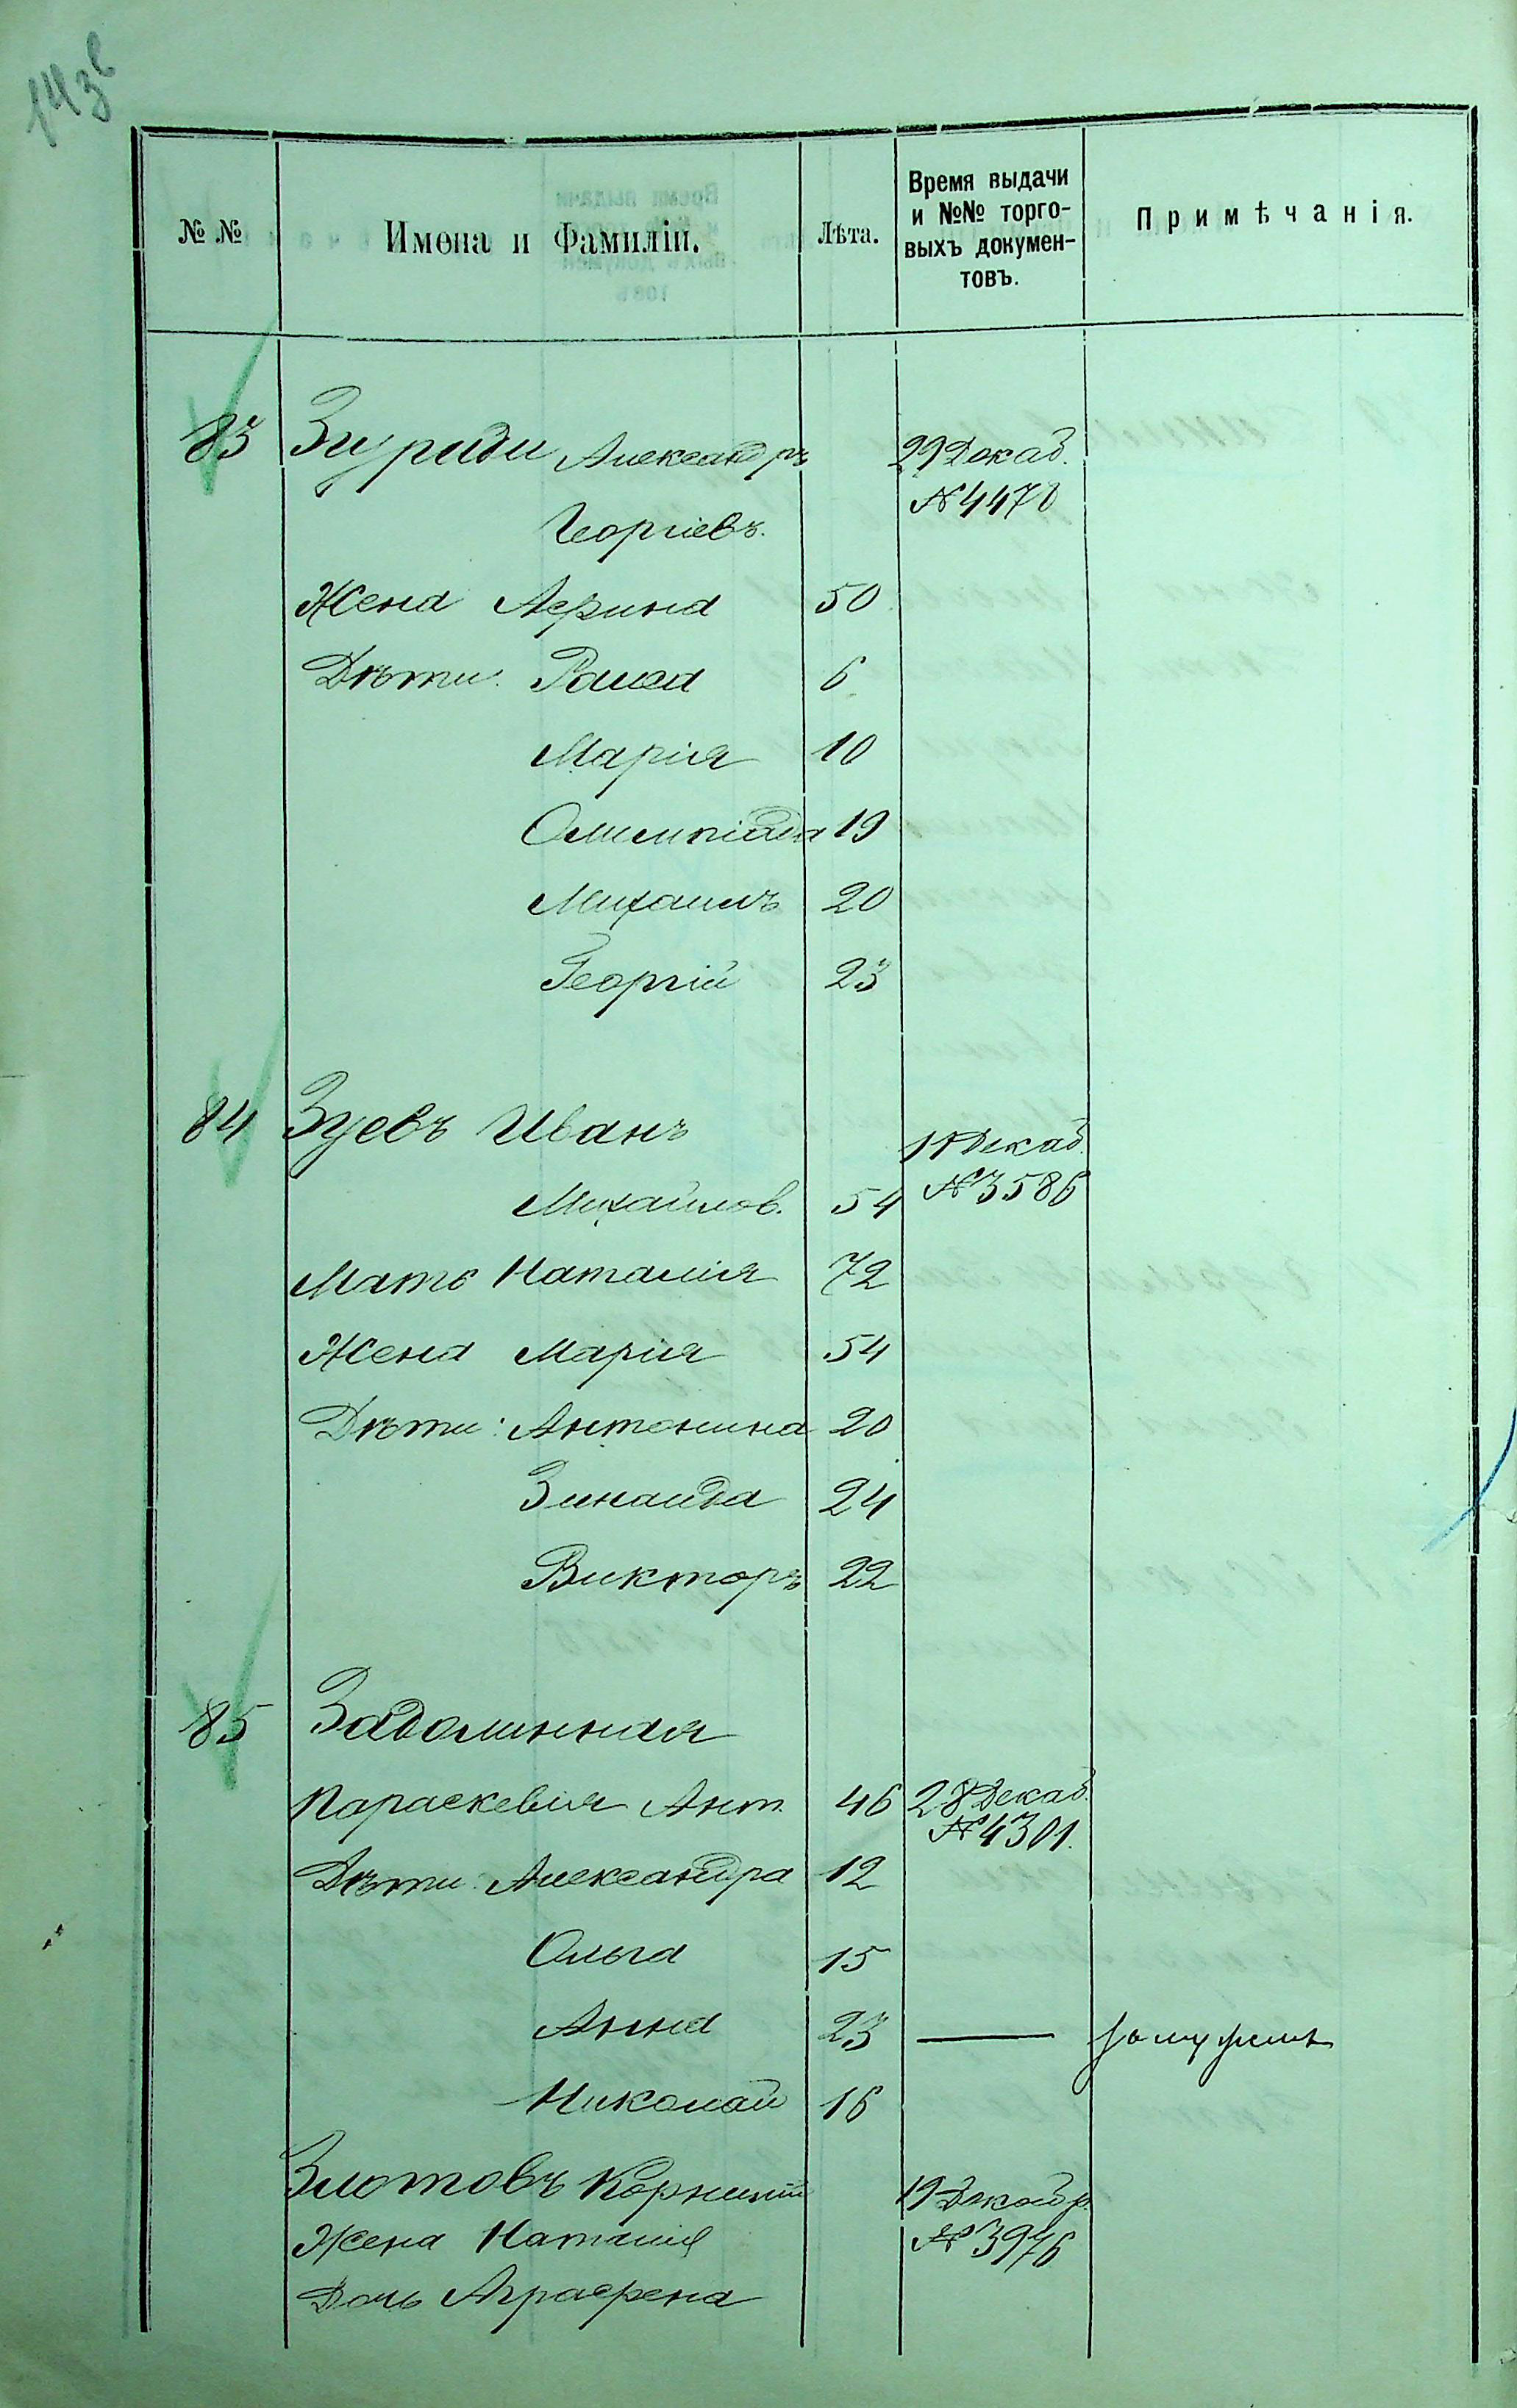 143
№ №
Имена и Фамиліи.
Лѣта.
Время выдачи
и №№ торго-
выхъ докумен-
товъ.
Примѣчанія.
83 Зуриди Александръ 29 Декаб.
Георгіевъ. № 4478
Жена Аерина 50
Дѣти: Раиса 6
Марія 10
Олимпіада 19
Михаилъ 20
Георгій 23
84 Зуевъ Иванъ 11 Декаб.
Михайлов. 54 № 3586
Мать Наталія 72
Жена Марія 54
Дѣти: Антонина 20
Зинаида 24
Викторъ 22
85 Задолинная
Параскевія Ант. 46 28 Декаб.
№ 4301.
Дѣти: Александра 12
Ольга 15
Анна 23 — замужемъ
Николай 16
Злотовъ Корнилій 19 Декабр.
Жена Наталія № 3976
Дочь Аграфена